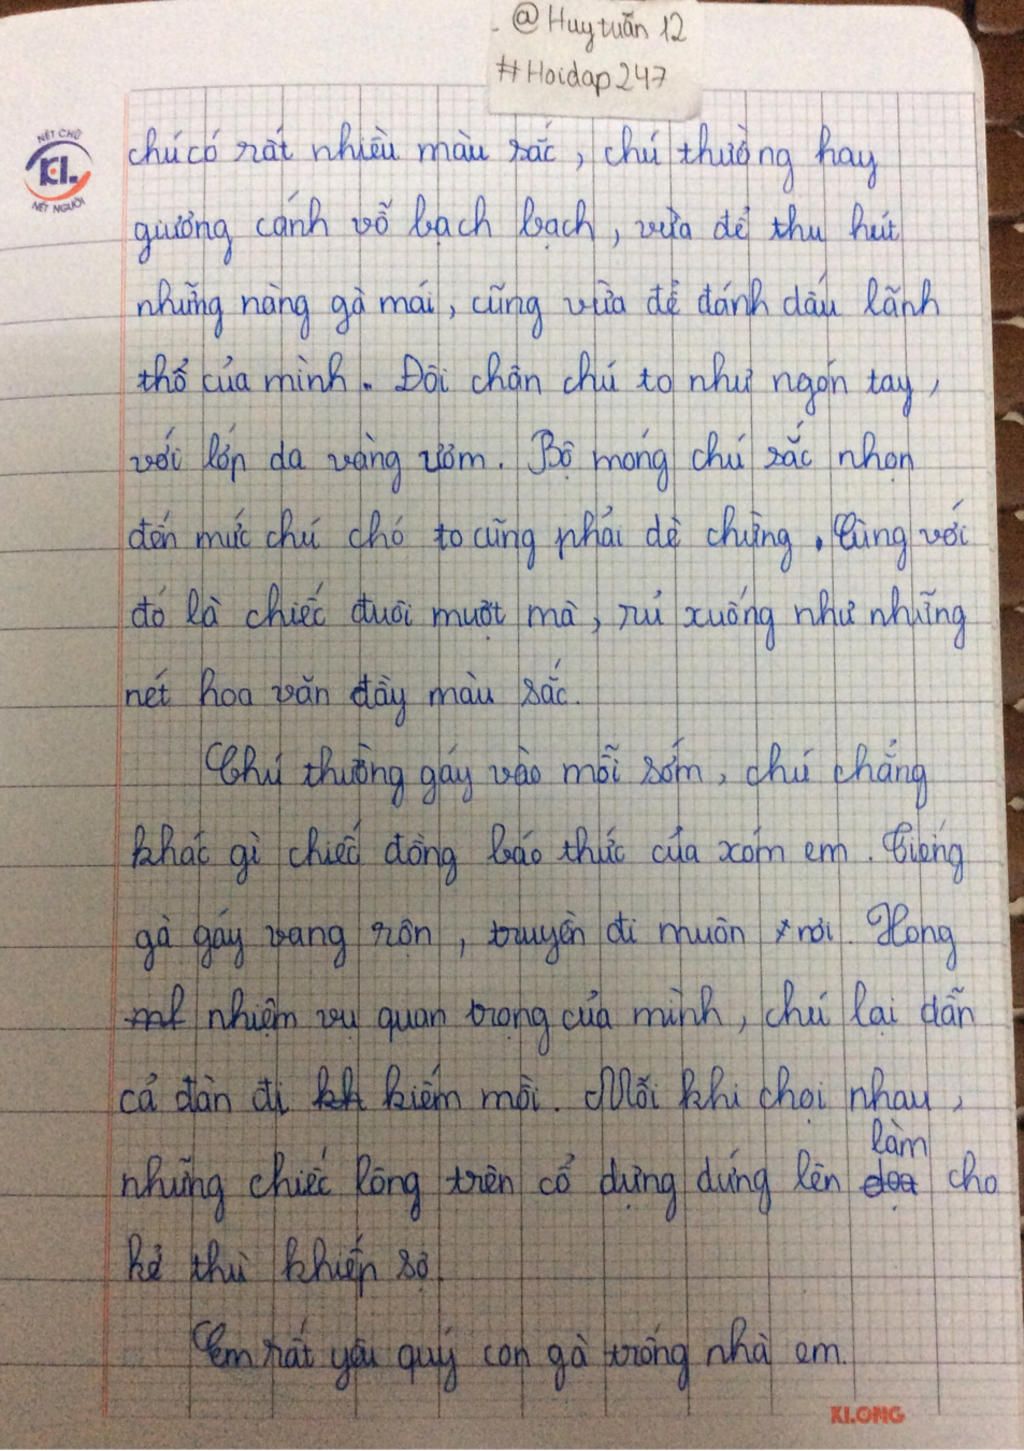 @Huytuấn 12
#Hoidap247
NÉT CHỮ
KL.
NẾT NGƯỜI
chú có rất nhiều màu sắc, chú thường hay
giương cánh vỗ bạch bạch, vừa để thu hút
những nàng gà mái, cũng vừa để đánh dấu lãnh
thổ của mình. Đôi chân chú to như ngón tay,
với lớp da vàng ươm. Bộ móng chú sắc nhọn
đến mức chú chó to cũng phải dè chừng. Cùng với
đó là chiếc đuôi mượt mà, rủ xuống như những
nét hoa văn đầy màu sắc.
Chú thường gáy vào mỗi sớm, chú chẳng
khác gì chiếc đồng báo thức của xóm em. Tiếng
gà gáy vang rộn, truyền đi muôn nơi. Xong
nhiệm vụ quan trọng của mình, chú lại dẫn
cả đàn đi kiếm mồi. Mỗi khi chọi nhau,
những chiếc lông trên cổ dựng đứng lên làm cho
kẻ thù khiếp sợ.
Em rất yêu quý con gà trống nhà em.
KLONG